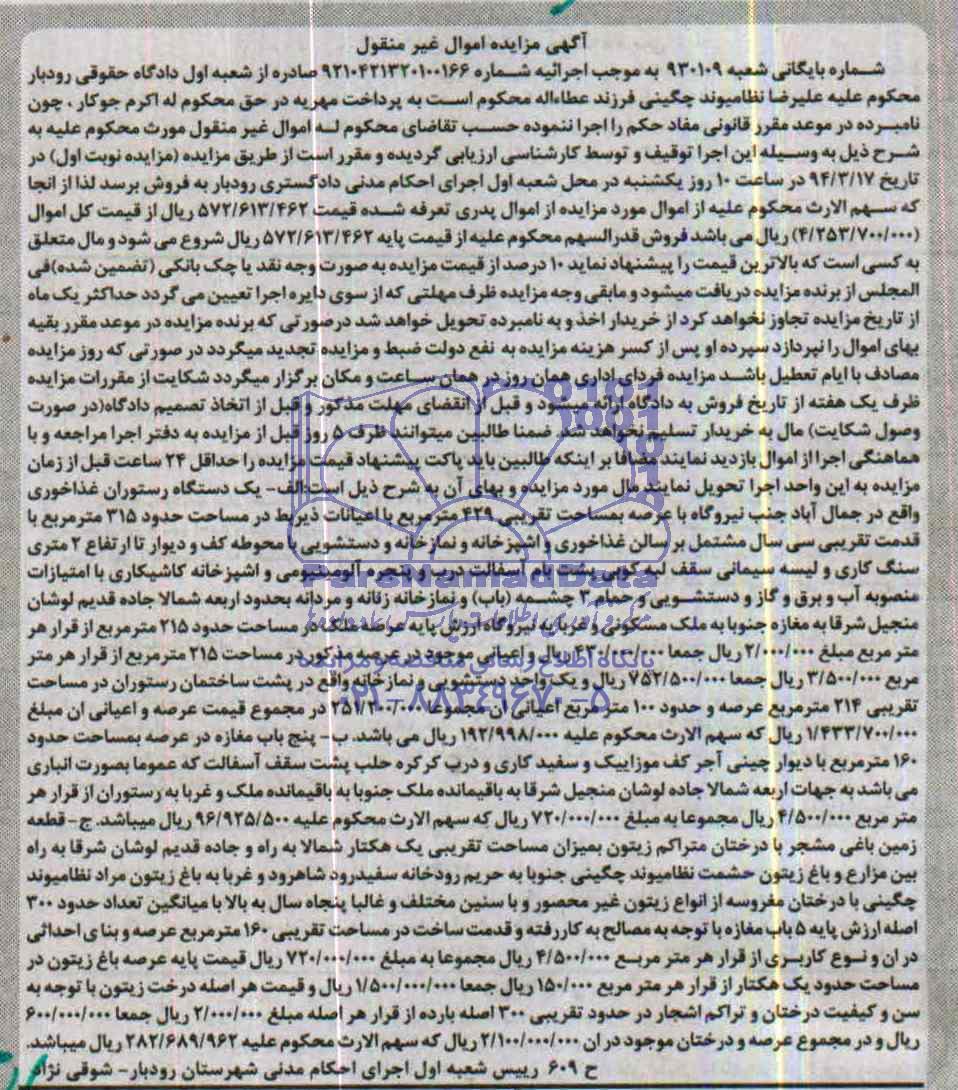 آگهی مزایده اموال غیر منقول
شماره بایگانی شعبه ۹۳۰۱۰۹ به موجب اجرائیه شماره ۹۲۱۰۴۲۱۳۲۰۱۰۰۱۶۶ صادره از شعبه اول دادگاه حقوقی رودبار
محکوم علیه علیرضا نظامیوند چگینی فرزند عطاءاله محکوم است به پرداخت مهریه در حق محکوم له اکرم جوکار ، چون
نامبرده در موعد مقرر قانونی مفاد حکم را اجرا ننموده حسب تقاضای محکوم له اموال غیر منقول مورث محکوم علیه به
شرح ذیل به وسیله این اجرا توقیف و توسط کارشناسی ارزیابی گردیده و مقرر است از طریق مزایده (مزایده نوبت اول) در
تاریخ ۹۴/۳/۱۷ در ساعت ۱۰ روز یکشنبه در محل شعبه اول اجرای احکام مدنی دادگستری رودبار به فروش برسد لذا از انجا
که سهم الارث محکوم علیه از اموال مورد مزایده از اموال پدری تعرفه شده قیمت ۵۷۲/۶۱۳/۴۶۲ ریال از قیمت کل اموال
(۴/۲۵۳/۷۰۰/۰۰۰) ریال می باشد فروش قدرالسهم محکوم علیه از قیمت پایه ۵۷۲/۶۱۳/۴۶۲ ریال شروع می شود و مال متعلق
به کسی است که بالاترین قیمت را پیشنهاد نماید ۱۰ درصد از قیمت مزایده به صورت وجه نقد یا چک بانکی (تضمین شده)فی
المجلس از برنده مزایده دریافت میشود و مابقی وجه مزایده ظرف مهلتی که از سوی دایره اجرا تعیین می گردد حداکثر یک ماه
از تاریخ مزایده تجاوز نخواهد کرد از خریدار اخذ و به نامبرده تحویل خواهد شد درصورتی که برنده مزایده در موعد مقرر بقیه
بهای اموال را نپردازد سپرده او پس از کسر هزینه مزایده به نفع دولت ضبط و مزایده تجدید میگردد در صورتی که روز مزایده
مصادف با ایام تعطیل باشد مزایده فردای اداری همان روز در همان ساعت و مکان برگزار میگردد شکایت از مقررات مزایده
ظرف یک هفته از تاریخ فروش به دادگاه ارائه میشود و قبل از انقضای مهلت مذکور و قبل از اتخاذ تصمیم دادگاه(در صورت
وصول شکایت) مال به خریدار تسلیم نخواهد شد ضمنا طالبین میتوانند ظرف ۵ روز قبل از مزایده به دفتر اجرا مراجعه و با
هماهنگی اجرا از اموال بازدید نمایند مضافا بر اینکه طالبین باید پاکت پیشنهاد قیمت مزایده را حداقل ۲۴ ساعت قبل از زمان
مزایده به این واحد اجرا تحویل نمایند مال مورد مزایده و بهای آن به شرح ذیل است:الف- یک دستگاه رستوران غذاخوری
واقع در جمال آباد جنب نیروگاه با عرصه بمساحت تقریبی ۴۲۹ مترمربع با اعیانات ذیربط در مساحت حدود ۳۱۵ مترمربع با
قدمت تقریبی سی سال مشتمل بر سالن غذاخوری و اشپزخانه و نمازخانه و دستشویی با محوطه کف و دیوار تا ارتفاع ۲ متری
سنگ کاری و لیسه سیمانی سقف لبه کوبی پشت بام آسفالت درب و پنجره آلومینیومی و اشپزخانه کاشیکاری با امتیازات
منصوبه آب و برق و گاز و دستشویی و حمام ۳ چشمه (باب) و نمازخانه زنانه و مردانه بحدود اربعه شمالا جاده قدیم لوشان
منجیل شرقا به مغازه جنوبا به ملک مسکونی و غربا به نیروگاه ارزش پایه عرصه ملک در مساحت حدود ۲۱۵ مترمربع از قرار هر
متر مربع مبلغ ۲/۰۰۰/۰۰۰ ریال جمعا ۴۳۰/۰۰۰/۰۰۰ ریال و اعیانی موجود در عرصه مذکور در مساحت ۲۱۵ مترمربع از قرار هر متر
مربع ۳/۵۰۰/۰۰۰ ریال جمعا ۷۵۲/۵۰۰/۰۰۰ ریال و یک واحد دستشویی و نمازخانه واقع در پشت ساختمان رستوران در مساحت
تقریبی ۲۱۴ مترمربع عرصه و حدود ۱۰۰ متر مربع اعیانی ان مجموعا ۲۵۱/۲۰۰/۰۰۰ در مجموع قیمت عرصه و اعیانی ان مبلغ
۱/۴۳۳/۷۰۰/۰۰۰ ریال که سهم الارث محکوم علیه ۱۹۲/۹۹۸/۰۰۰ ریال می باشد. ب- پنج باب مغازه در عرصه بمساحت حدود
۱۶۰ مترمربع با دیوار چینی آجر کف موزاییک و سفید کاری و درب کرکره حلب پشت سقف آسفالت که عموما بصورت انباری
می باشد به جهات اربعه شمالا جاده لوشان منجیل شرقا به باقیمانده ملک جنوبا به باقیمانده ملک و غربا به رستوران از قرار هر
متر مربع ۴/۵۰۰/۰۰۰ ریال مجموعا به مبلغ ۷۲۰/۰۰۰/۰۰۰ ریال که سهم الارث محکوم علیه ۹۶/۹۲۵/۵۰۰ ریال میباشد. ج- قطعه
زمین باغی مشجر با درختان متراکم زیتون بمیزان مساحت تقریبی یک هکتار شمالا به راه و جاده قدیم لوشان شرقا به راه
بین مزارع و باغ زیتون حشمت نظامیوند چگینی جنوبا به حریم رودخانه سفیدرود شاهرود و غربا به باغ زیتون مراد نظامیوند
چگینی با درختان مغروسه از انواع زیتون غیر محصور و با سنین مختلف و غالبا پنجاه سال به بالا با میانگین تعداد حدود ۳۰۰
اصله ارزش پایه ۵ باب مغازه با توجه به مصالح به کار رفته و قدمت ساخت در مساحت تقریبی ۱۶۰ مترمربع عرصه و بنای احداثی
در ان و نوع کاربری از قرار هر متر مربع ۴/۵۰۰/۰۰۰ ریال مجموعا به مبلغ ۷۲۰/۰۰۰/۰۰۰ ریال قیمت پایه عرصه باغ زیتون در
مساحت حدود یک هکتار از قرار هر متر مربع ۱۵۰/۰۰۰ ریال جمعا ۱/۵۰۰/۰۰۰/۰۰۰ ریال و قیمت هر اصله درخت زیتون با توجه به
سن و کیفیت درختان و تراکم اشجار در حدود تقریبی ۳۰۰ اصله بارده از قرار هر اصله مبلغ ۲/۰۰۰/۰۰۰ ریال جمعا ۶۰۰/۰۰۰/۰۰۰
ریال و در مجموع عرصه و درختان موجود در ان ۲/۱۰۰/۰۰۰/۰۰۰ ریال که سهم الارث محکوم علیه ۲۸۲/۶۸۹/۹۶۲ ریال میباشد.
ح ۶۰۹ رییس شعبه اول اجرای احکام مدنی شهرستان رودبار- شوقی نژاد
ParsNamadData
پایگاه اطلاع رسانی مناقصه و مزایده
۰۲۱-۸۸۳۴۹۶۷۰-۵